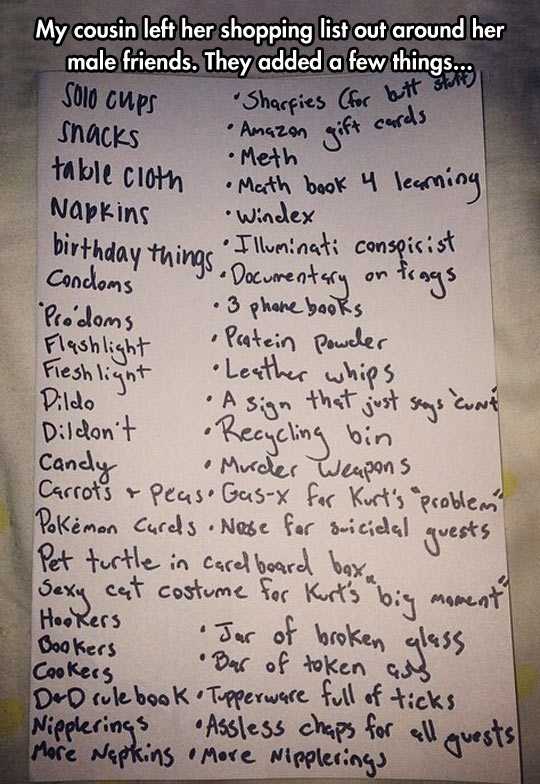 My cousin left her shopping list out around her
male friends. They added a few things...
Solo cups
snacks
table cloth
Napkins
birthday things
Condoms
'Pro'doms
Flashlight
Fleshlight
Dildo
Dildon't
Candy
Carrots + Peas
Pokémon Cards
Pet turtle in cardboard box
Sexy cat costume for Kurt's "big moment"
Hookers
Bookers
Cookers
D+D rulebook
Nipplerings
More Napkins
• Sharpies (for butt stuff)
• Amazon gift cards
• Meth
• Math book 4 learning
• Windex
• Illuminati conspicist
• Documentary on frogs
• 3 phone books
• Protein Powder
• Leather whips
• A sign that just says "cunt"
• Recycling bin
• Murder Weapons
• Gas-X for Kurt's "problem"
• Nose for suicidal guests
• Jar of broken glass
• Bar of token
• Tupperware full of ticks
• Assless chaps for all guests
• More Nipplerings